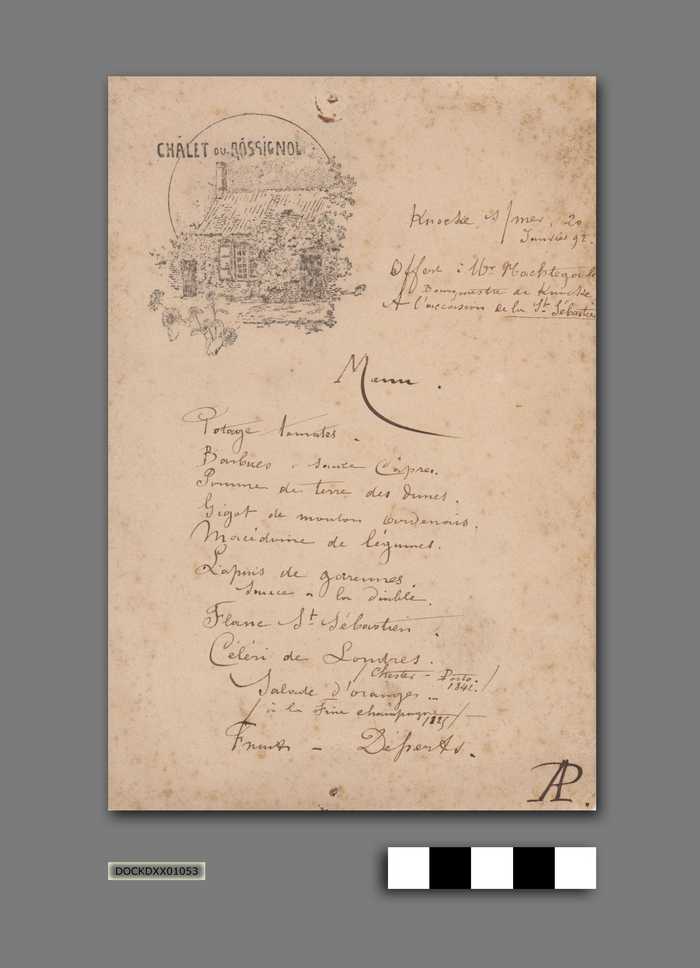 CHÂLET DU ROSSIGNOL
Knocke s/mer, 20
Janvier 92.
Offert à Mr
Bourgmestre de Knocke
A l'occasion de la St Sébastien
Menu.
Potage tomates.
Barbues, sauce Câpres.
Pomme de terre des dunes.
Gigot de mouton ardennais.
Macédoine de légumes.
Lapins de garennes.
Sauce à la diable.
Flanc St Sébastien.
Céléri de Londres.
/ Chester - Porto. 1842. /
Salade d'oranges -
/ à la Fine champagne 1825 / -
Fruits - Désserts.
AP.
DOCKDXX01053